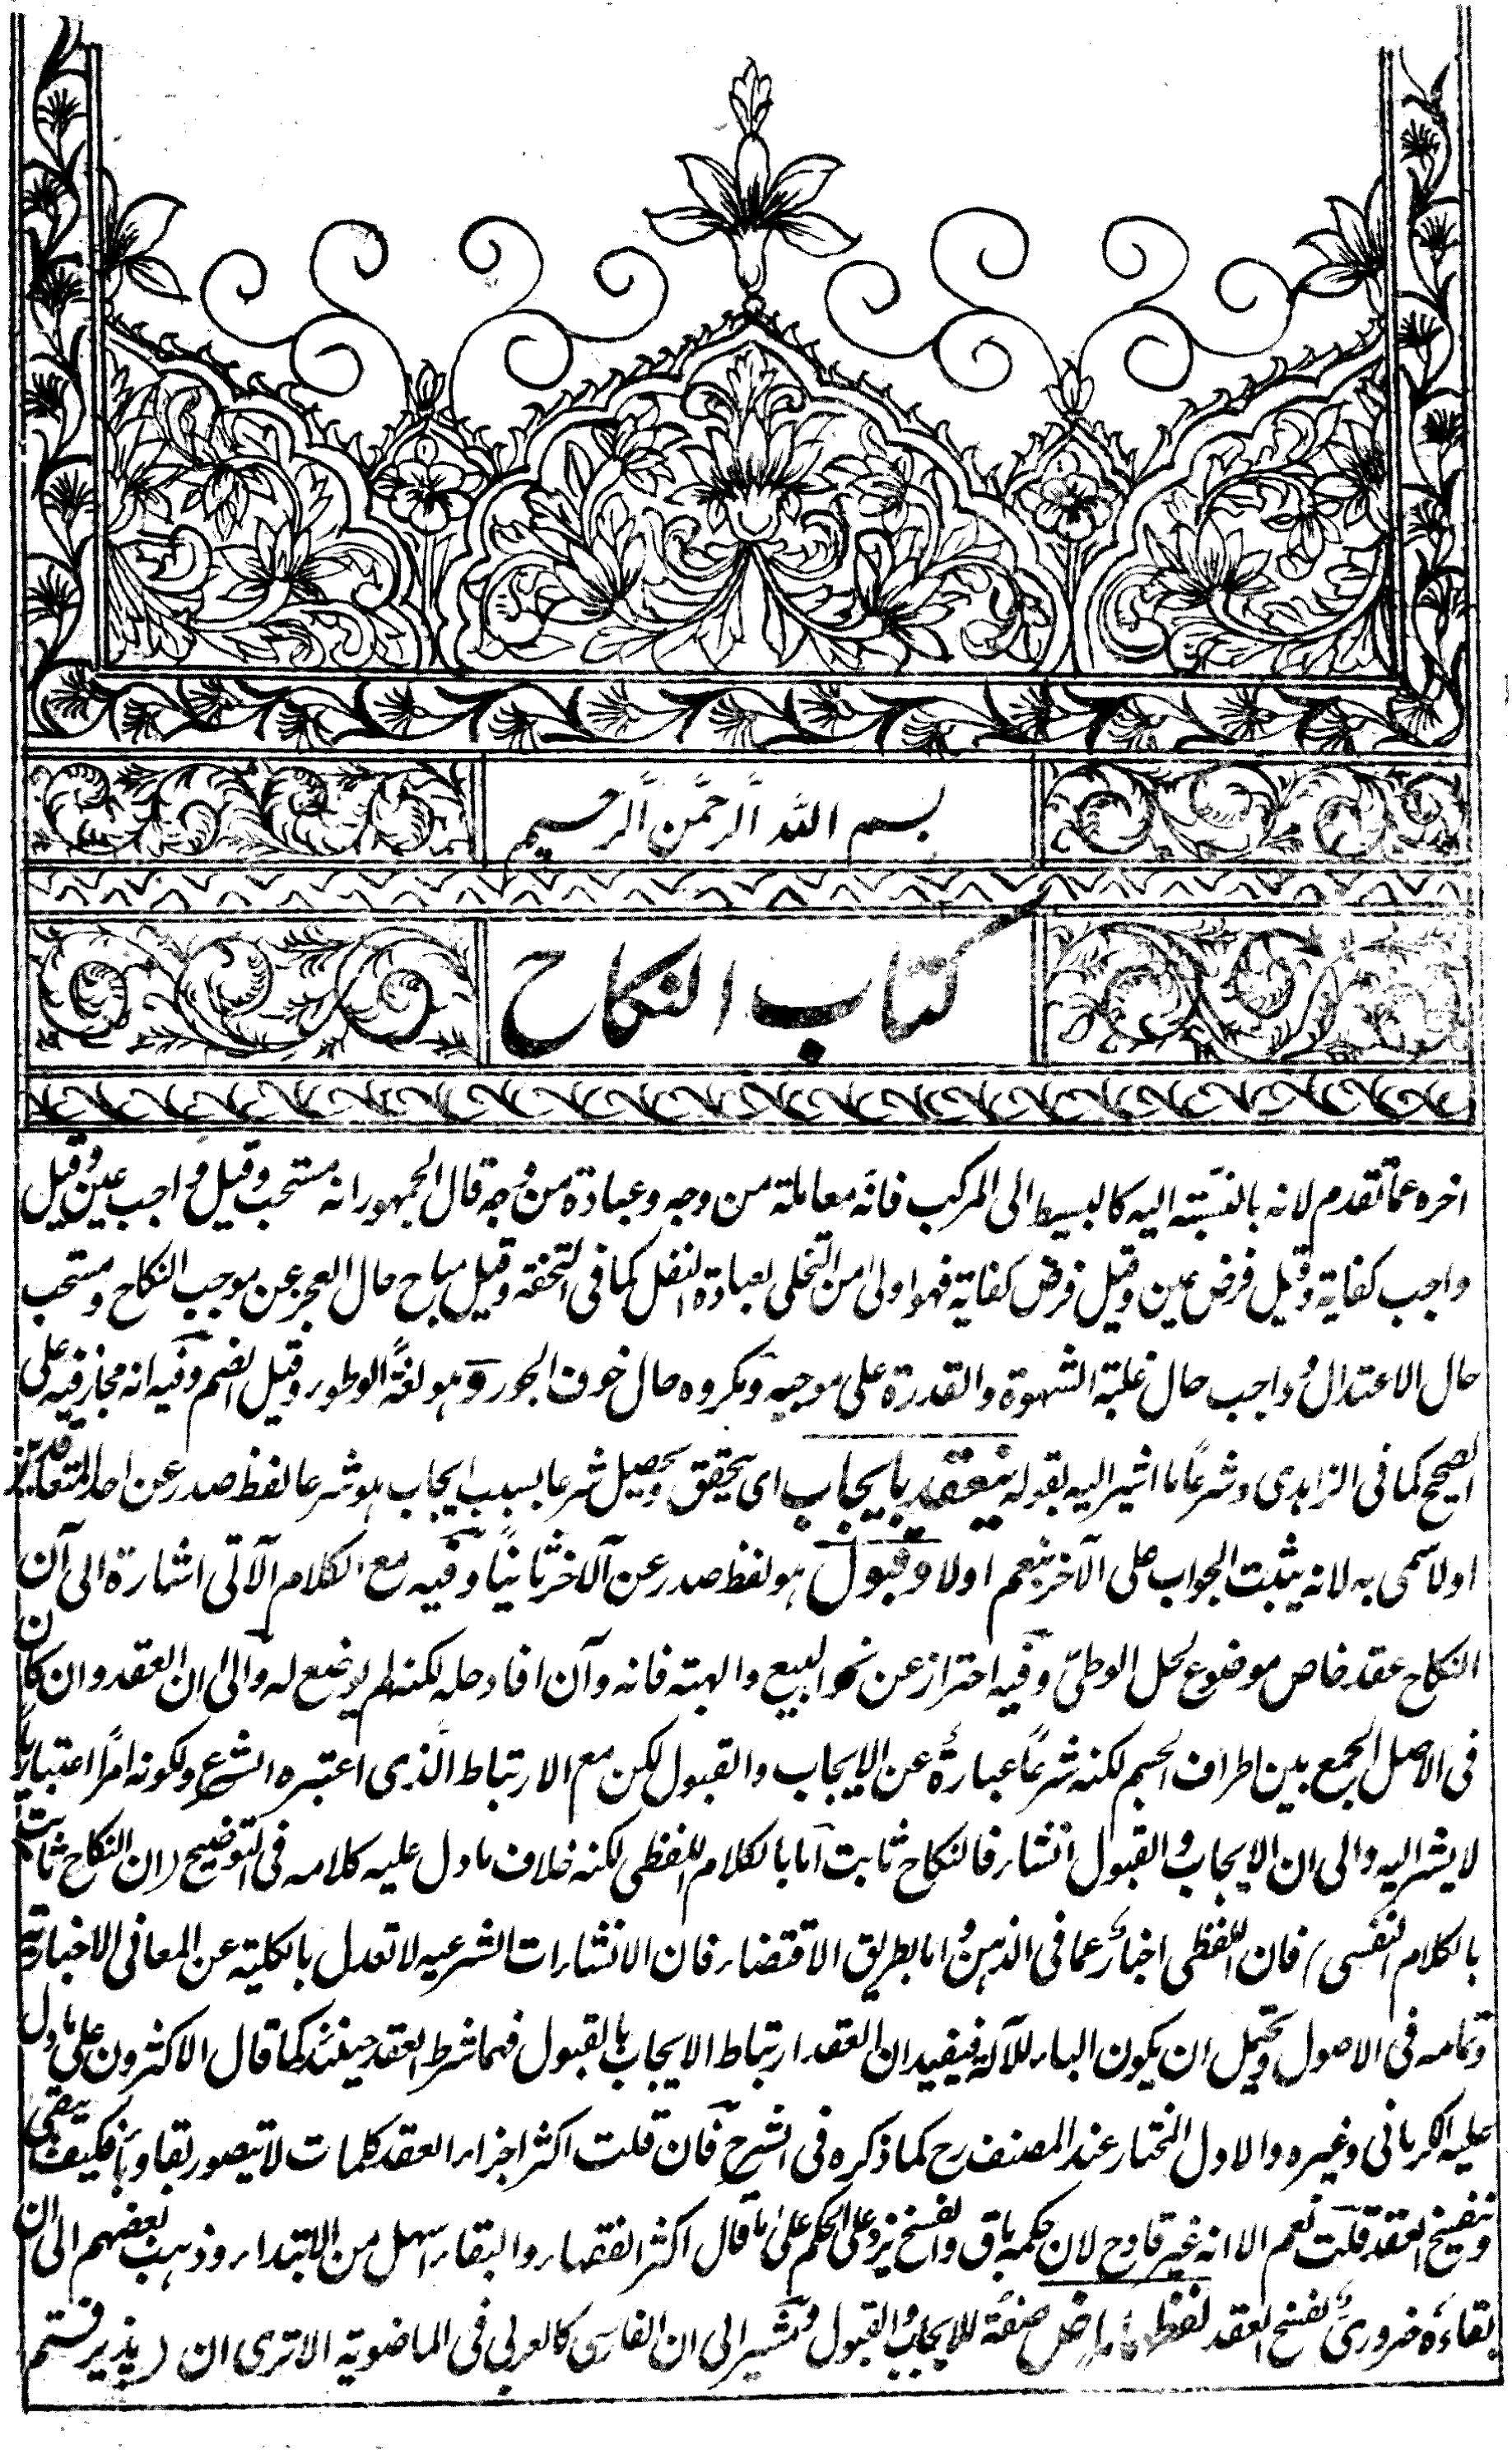 بسم الله الرحمن الرحيم
كتاب النكاح
اخره عما تقدم لانه بالنسبة اليه كالبسيط الى المركب فانه معاملة من وجه وعبادة من وجه قال الجمهور انه مستحب وقيل واجب عين وقيل
واجب كفاية وقيل فرض عين وقيل فرض كفاية فهو اولى من التخلى لعبادة النفل كما فى التحفه وقيل مباح حال العجز عن موجب النكاح ومستحب
حال الاعتدال وواجب حال غلبة الشهوة والقدرة على موجبه ومكروه حال خوف الجور وهو لغةً الوطور وقيل الضم وفيه انه مجاز فيه على
الصحيح كما فى الزاهدى وشرعاً ما اشير اليه بقوله ينعقد بايجاب اى يتحقق ويحصل شرعا بسبب ايجاب هو شرعا لفظ صدر عن احد المتعاقدين
اولا سمى به لانه يثبت الجواب على الآخر بنعم اولا وقبول هو لفظ صدر عن الآخر ثانياً وفيه مع الكلام الآتى اشارة الى آن
النكاح عقد خاص موضوع لحل الوطى وفيه احتراز عن نحو البيع والهبته فانه وآن افاد حله لكنه لم يوضع له والى ان العقد وان كان
فى الاصل الجمع بين اطراف الجسم لكنه شرعاً عبارة عن الايجاب والقبول لكن مع الارتباط الذى اعتبره الشرع ولكونه امرًا اعتباريا
لا يشر اليه والى ان الايجاب والقبول انشاء فالنكاح ثابت اما بالكلام اللفظى لكنه خلاف ما دل عليه كلامه فى التوضيح (ان النكاح ثابت
بالكلام النفسى) فان اللفظى اخبار عما فى الذهن واما بطريق الاقتضاء فان الانشاءات الشرعيه لا تعدل بالكلية عن المعانى الاخبارية
وتمامه فى الاصول ويحتمل ان يكون الباء للآلة فيفيد ان العقد ارتباط الايجاب بالقبول فهما شرط العقد حينئذ كما قال الاكثرون على ما دل
عليه الكرمانى وغيره والاول المختار عند المصنف رح كما ذكره فى الشرح فآن قلت اكثر اجزاء العقد كلمات لا يتصور بقاوها فكيف يبقى
وينفسخ العقد قلت نعم الا انه غير قادح لان حكمه باق والفسخ يرد على الحكم على ما قال اكثر الفقهاء والبقاء اسهل من الابتداء وذهب بعضهم الى ان
بقاءه ضرورىٌ لفسخ العقد لفظهما ماض صفة للايجاب والقبول ومشير الى ان الفارسى كالعربى فى الماضوية الا ترى ان (پذيرفتم